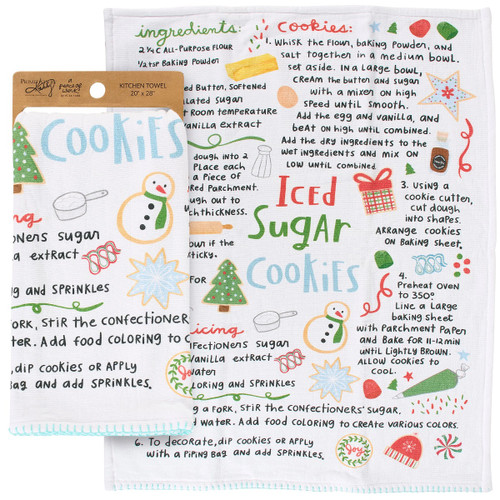 KITCHEN TOWEL
20" x 28"
COOKIES
icing
ctioners sugar
a extract
g and SPRINKLES
FORK, STIR the CONFECTIONER
ater. Add food coloring to C
, dip cookies or APPLY
Bag and add SPRINKLES.
ingredients:
2 ¼ C ALL-PURPOSE FLOUR
½ tsp BAKING POWDER
d Butter, Softened
ulated sugar
t ROOM temperature
anilla extract
dough into 2
Place each
a Piece of
red Parchment.
ugh out to
ch thickness.
own if the
ticky.
FOR
icing
fectioners sugar
Vanilla extract
water
loring and SPRINKLES
g a FORK, STIR the CONFECTIONERS' SUGAR,
d water. Add food coloring to create various colors.
6. To decorate, dip cookies or APPLY
with a PIPING BAG and add SPRINKLES.
Cookies:
1. Whisk the flour, baking powder, and
salt together in a medium bowl.
set aside. In a large bowl,
CREAM the butter and sugar
with a mixer on high
speed until smooth.
Add the egg and vanilla, and
beat on high until combined.
Add the dry ingredients to the
wet ingredients and mix on
low until combined
Iced
Sugar
Cookies
3. Using a
cookie cutter,
cut dough
into shapes.
Arrange cookies
on Baking sheet.
4.
Preheat oven
to 350°
Line a large
Baking sheet
with Parchment Paper
and Bake for 11-12 min
until Lightly Brown.
Allow cookies to
cool.
Joy